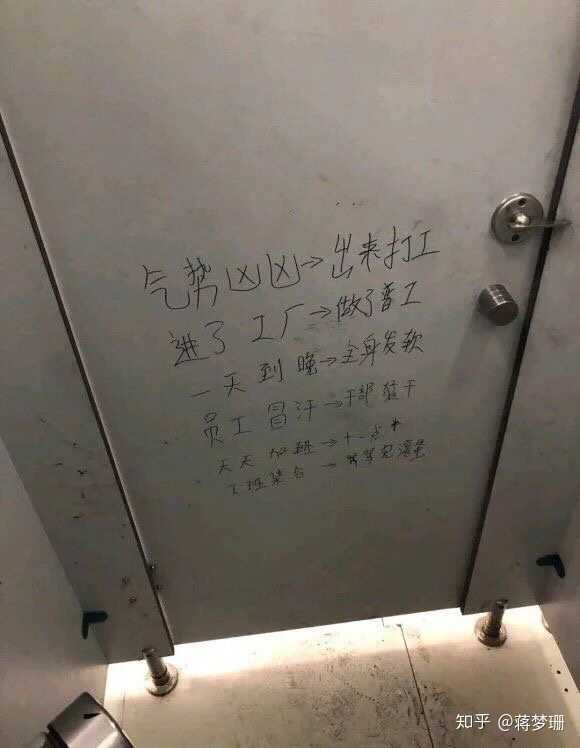 气势凶凶→出来打工
进了工厂→做了普工
一天到晚→全身发软
员工冒汗→干部猛干
天天加班→十一点半
下班集合→
知乎 @蒋梦珊